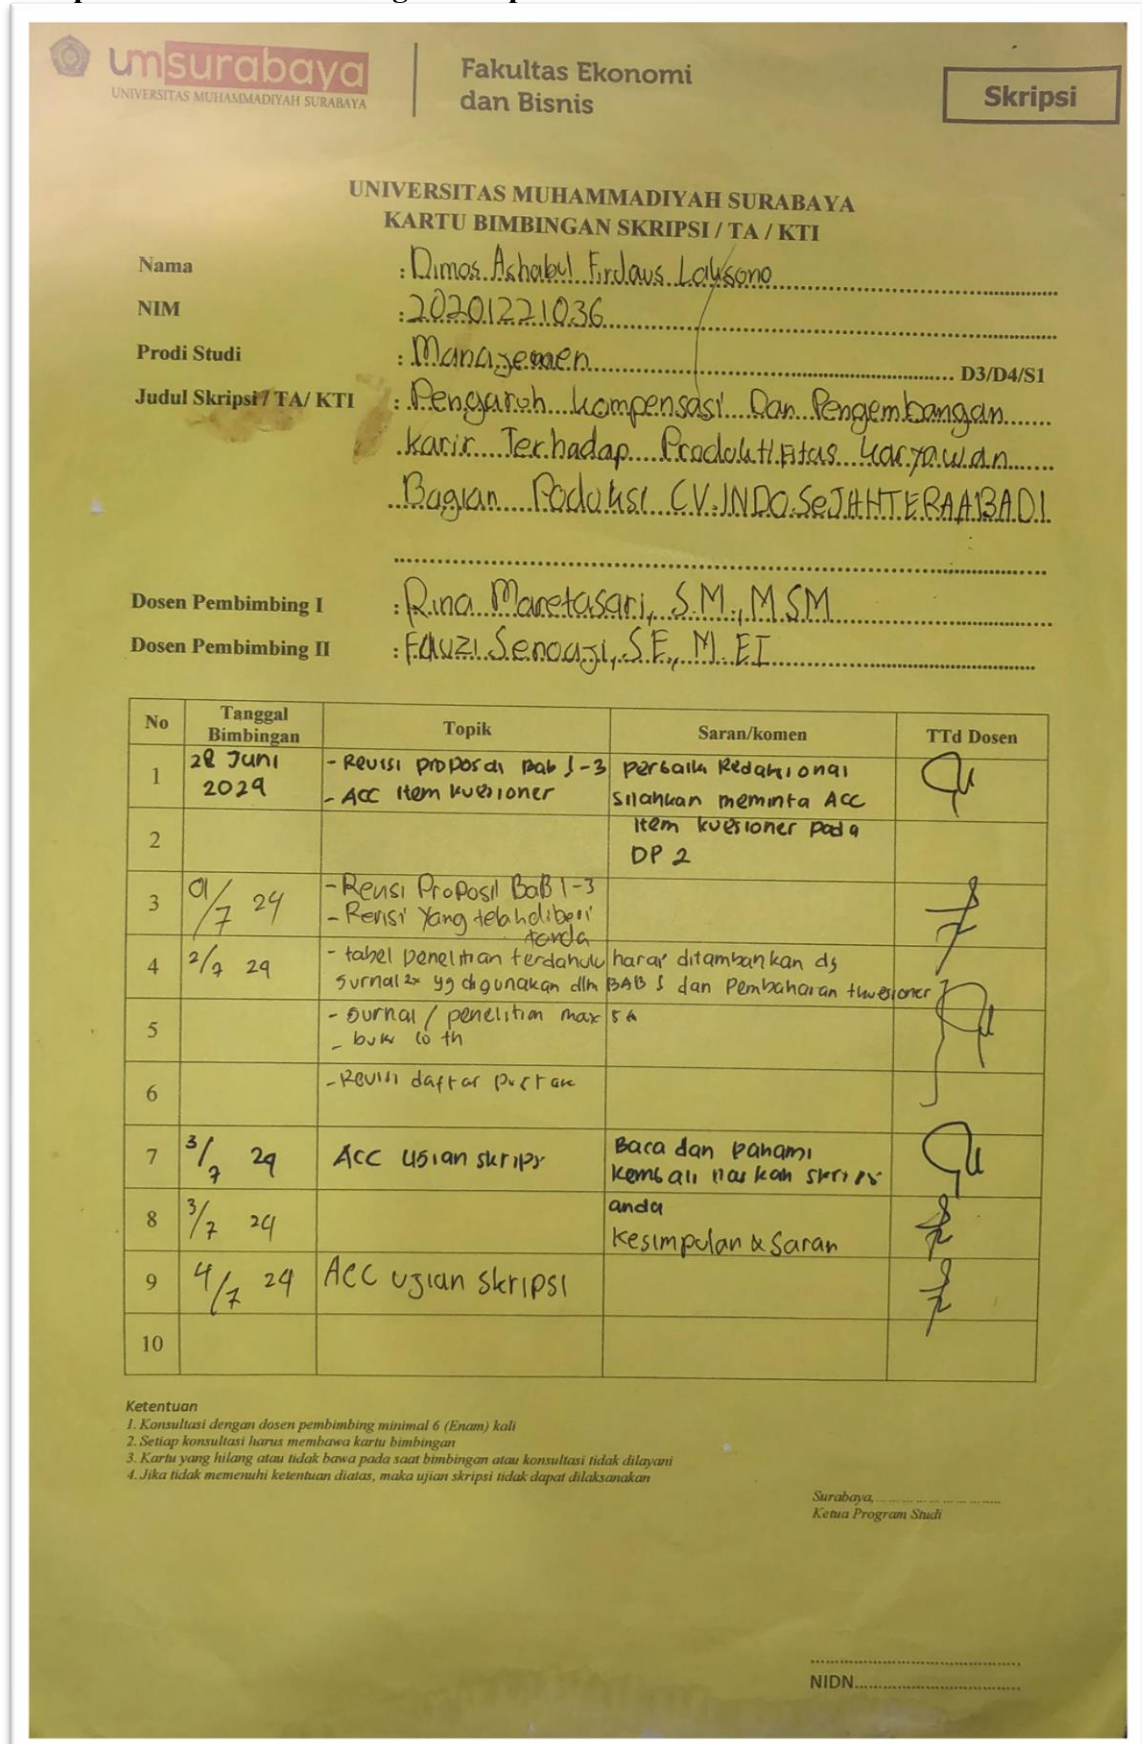 umsurabaya
UNIVERSITAS MUHAMMADIYAH SURABAYA
Fakultas Ekonomi
dan Bisnis
Skripsi
UNIVERSITAS MUHAMMADIYAH SURABAYA
KARTU BIMBINGAN SKRIPSI / TA / KTI
Nama : Dimas Ashabul Firdaus Laksono
NIM : 20201221036
Prodi Studi : Manajemen D3/D4/S1
Judul Skripsi / TA/ KTI : Pengaruh kompensasi Dan Pengembangan
karir Terhadap karyawan
Bagian Poduksi CV.INDO.SeJAHTERAABADI
Dosen Pembimbing I : Rina Maretasari, S.M., M.SM
Dosen Pembimbing II : Fauzi Senoaji, S.E, M.EI
No Tanggal Bimbingan Topik Saran/komen TTd Dosen
1 28 Juni - Revisi proposal Bab 1-3 perbaiki Redaksional
2024 - ACC item kuesioner silahkan meminta ACC
item kuesioner pada
2 DP 2
3 01/7 24 - Revisi Proposal BaB 1-3
- Revisi Yang telah diberi
tanda
4 2/7 24 - tabel penelitian terdahulu ditambahkan dg
yg digunakan dlm BAB dan
5 - Jurnal / penelitian max 5
- buku 10 th
6 - Revisi daftar
7 3/7 24 ACC ujian skripsi Baca dan pahami
kembali naskah skripsi
8 3/7 24 anda
Kesimpulan & Saran
9 4/7 24 ACC ujian skripsi
10
Ketentuan
1. Konsultasi dengan dosen pembimbing minimal 6 (Enam) kali
2. Setiap konsultasi harus membawa kartu bimbingan
3. Kartu yang hilang atau tidak bawa pada saat bimbingan atau konsultasi tidak dilayani
4. Jika tidak memenuhi ketentuan diatas, maka ujian skripsi tidak dapat dilaksanakan
Surabaya,
Ketua Program Studi
NIDN